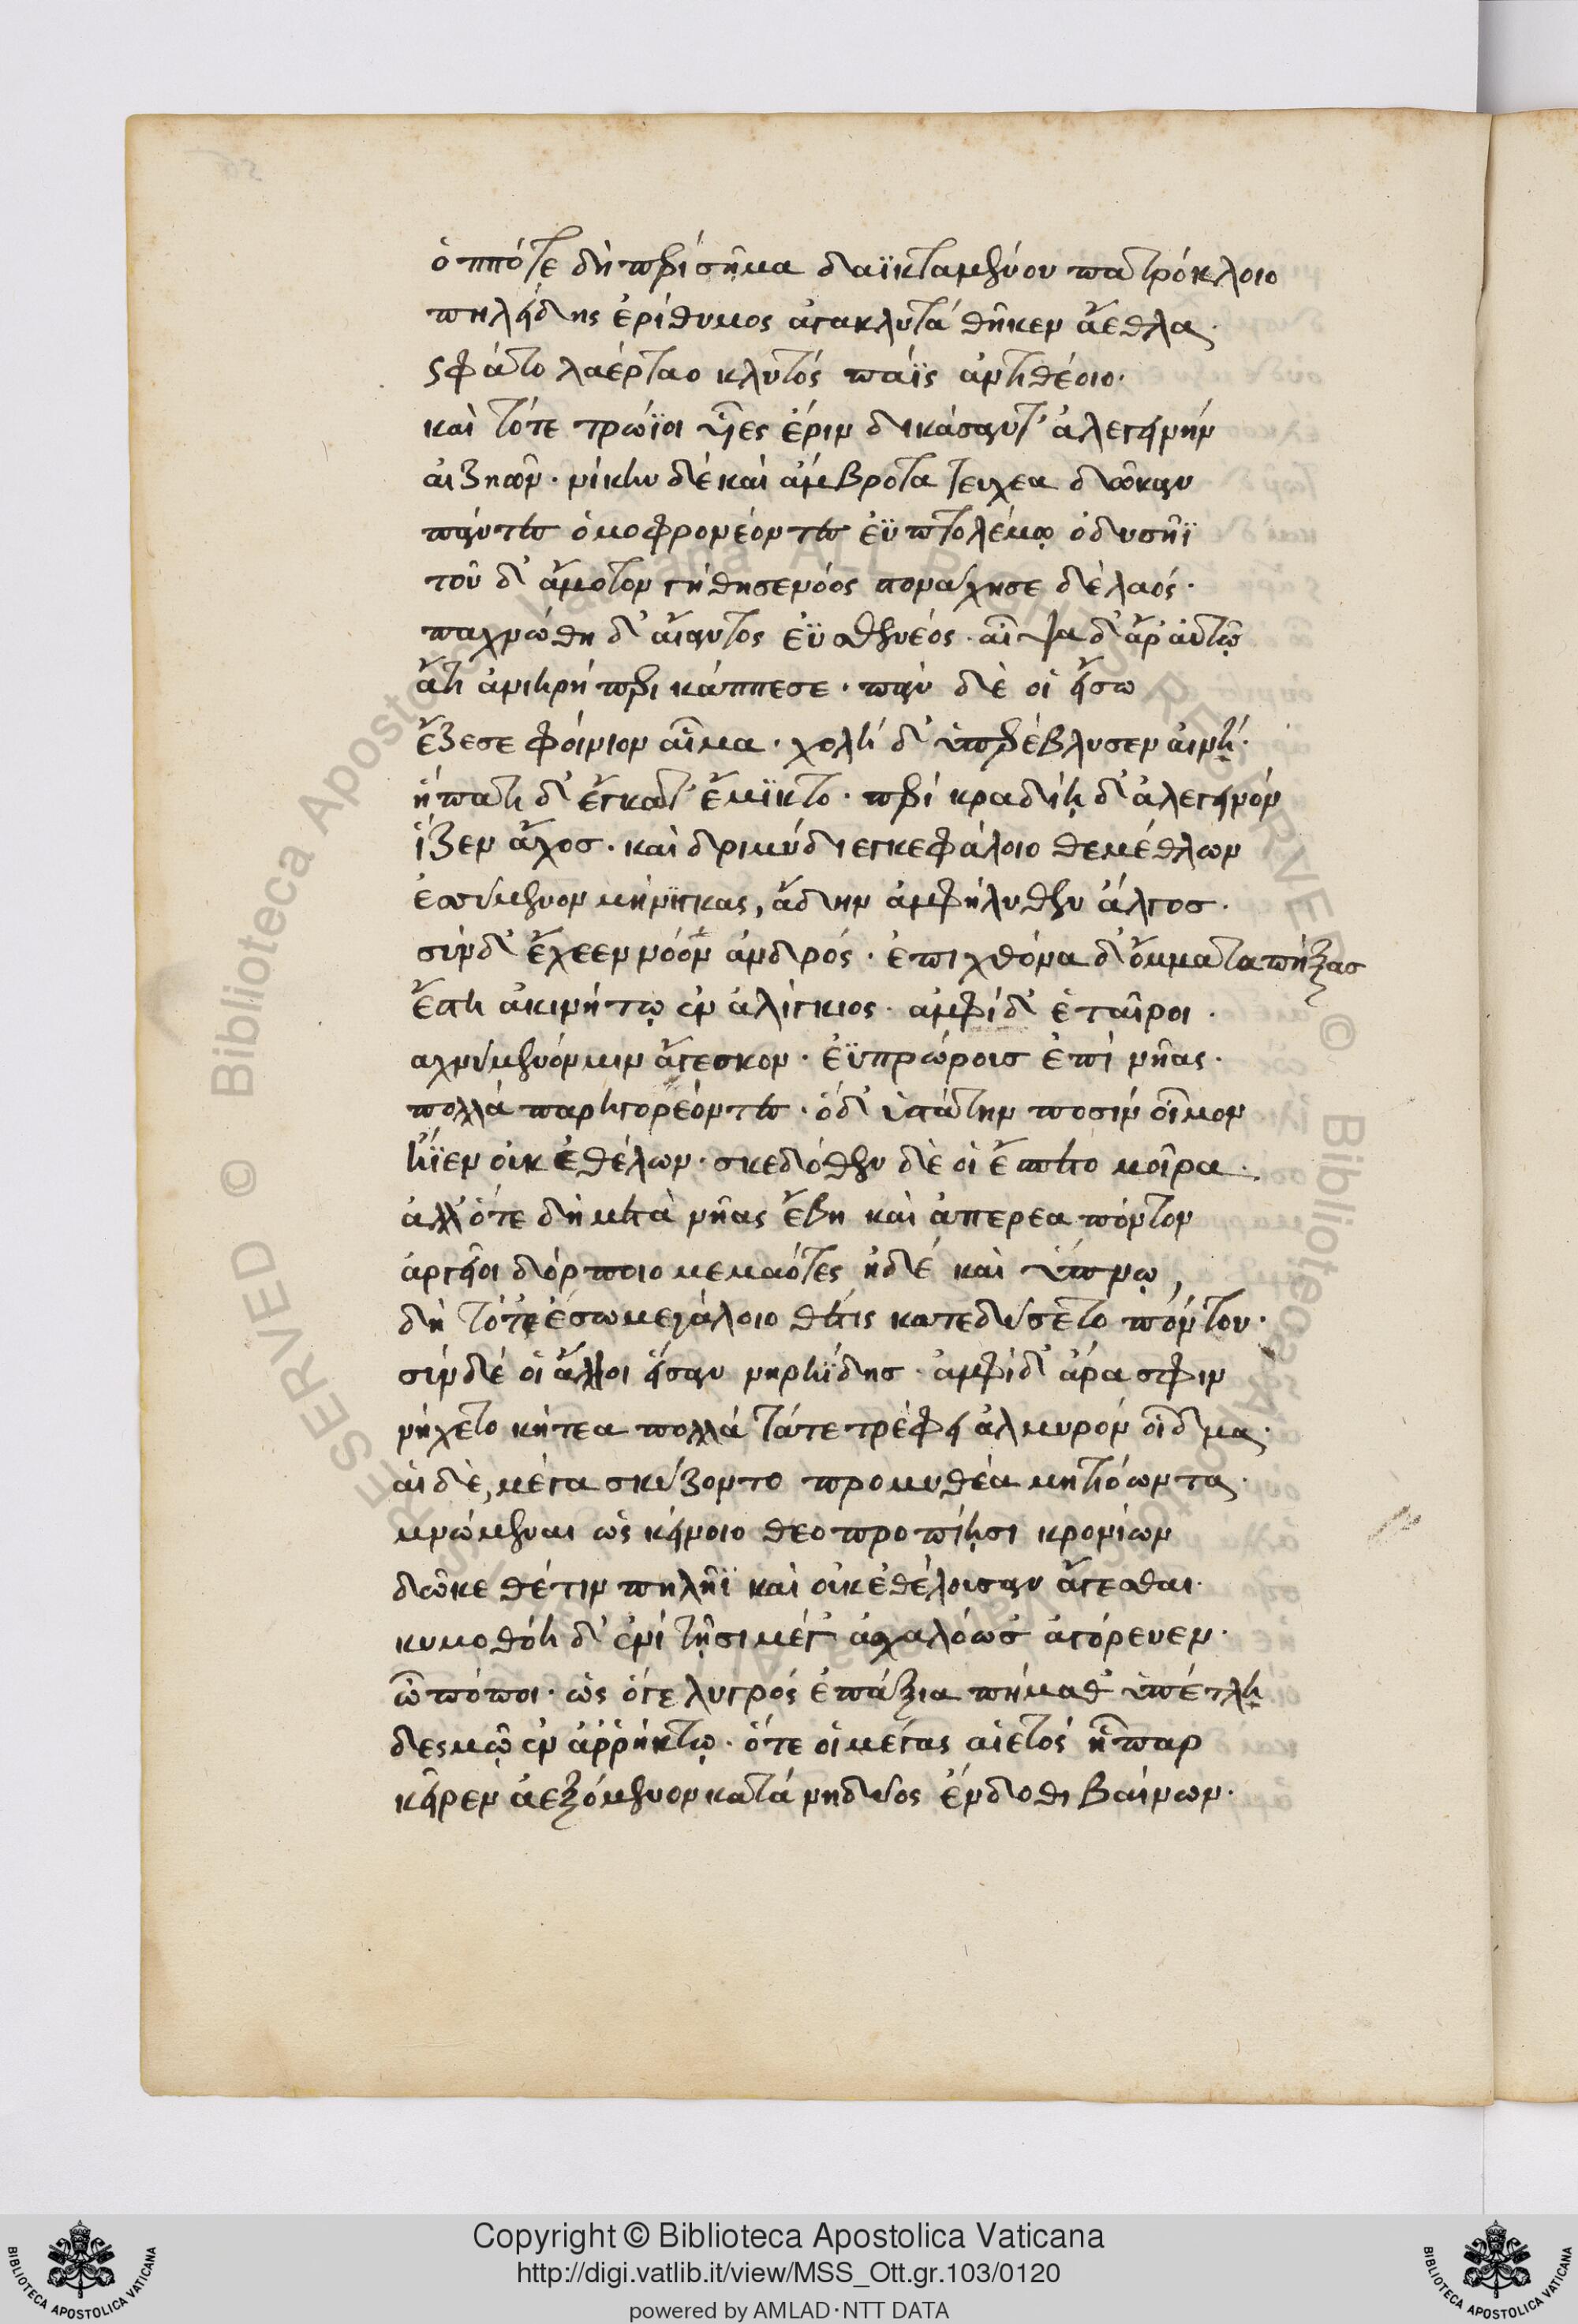 ὁππότε δὴ περὶ σῆμα δαϊκταμένου πατρόκλοιο
πηλείδης ἐρίθυμος ἀγακλυτὰ θῆκεν ἄεθλα·
ς φάτο λαέρταο κλυτός πάϊς ἀντιθέοιο·
καὶ τότε τρώϊοι υἷες ἔριν δικάσαντ' ἀλεγεινήν
αἰζηῶν· νίκην δὲ καὶ ἄμβροτα τευχεα δῶκαν
πάντες ὁμοφρονέοντες ἐϋπτολέμῳ ὀδυσῆϊ
τοῦ δ' ἄμοτον γήθησε νόος πονάχησε δὲ λαός·
παχνώθη δ' αἴαντος ἐῢ σθενέος· αἶψα δ' ἄρ' αὐτῷ
ἄτη ἀνιηρή περικάππεσε· πᾶν δὲ οἱ εἴσω
ἔζεσε φοίνιον αἷμα· χολή δ' ὑπερέβλυσεν αἰνῄ·
ἥπατι δ' ἔγκατ' ἔμϊκτο· περὶ κραδίῃ δ' ἀλεγεινόν
ἵζεν ἄχος· καὶ δριμύ δι εγκεφάλοιο θεμέθλων
ἐσσύμενον μήνϊγκας, ἄδην ἀμφήλυθεν ἄλγος·
σύν δ' ἔχεεν νόον ἀνδρός· ἐπι χθόνα δ' ὄμματα πήξας
ἔστη ἀκινήτῳ ἐναλίγκιος· ἀμφὶ δ' ἑταῖροι·
αχνύμενόν μιν ἄγεσκον· ἐϋπρώροις ἐπί νῆας·
πολλά παρηγορέοντες· ὁ δ' ὑστάτην ποσίν οἶμον
ἤϊεν οὐκ ἐθέλων· σκεδόθεν δὲ οἱ ἔσπετο μοῖρα.
ἀλλ' ὅτε δὴ μετὰ νῆας ἔβη καὶ ἀπερεα πόντον
ἀργεῖοι δόρποιο μεμαότες ἠδέ καὶ ὕπνῳ,
δὴ τότε ἔσω μεγάλοιο θέτις κατεδύσετο πόντου·
σύν δέ οἱ ἄλλοι ᾔσαν νηρηΐδης· ἀμφὶ δ' ἄρα σφιν
νήχετο κήτεα πολλά τάτε τρέφει ἁλμυρόν οἶδμα·
αἱ δὲ, μέγα σκύζοντο προμυθέα μητιόωντα·
μνώμεναι ὡς κείνοιο θεοπροπίῃσι κρονίων
δῶκε θέτιν πηλῆϊ καὶ οὐκ ἐθέλοισαν ἄγεσθαι·
κυμοθόη δ' ἐνί τῇσι μέγ' ἀσχαλόωσ' ἀγόρευεν·
ὦ πόποι· ὡς ὅγε λυγρός ἐπάξια πήμαθ' ὑπέτλῃ
δεσμῷ ἐν ἀρρήκτῳ· ὅτε οἱ μέγας αἰετός ἧπαρ
κεῖρεν ἀεξόμενον κατά νηδύος ἔνδοθι βαίνων·
Copyright © Biblioteca Apostolica Vaticana
http://digi.vatlib.it/view/MSS_Ott.gr.103/0120
powered by AMLAD·NTT DATA